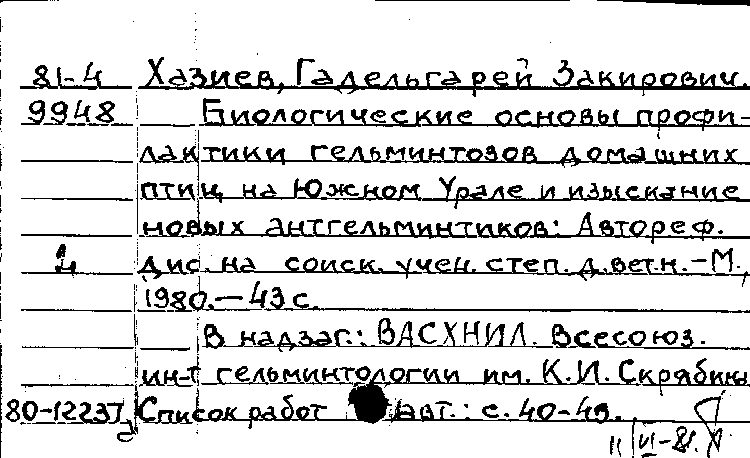 81-4 Хазиев, Гадельгарей Закирович.
9948 Биологические основы профи-
лактики гельминтозов домашних
птиц на Южном Урале и изыскание
новых антгельминтиков: Автореф.
дис. на соиск. учен. степ. д. вет. н. - М.,
1980. - 43 с.
В надзаг.: ВАСХНИЛ. Всесоюз.
ин-т гельминтологии им. К.И. Скрябина
80-12237 Список работ авт.: с. 40-43.